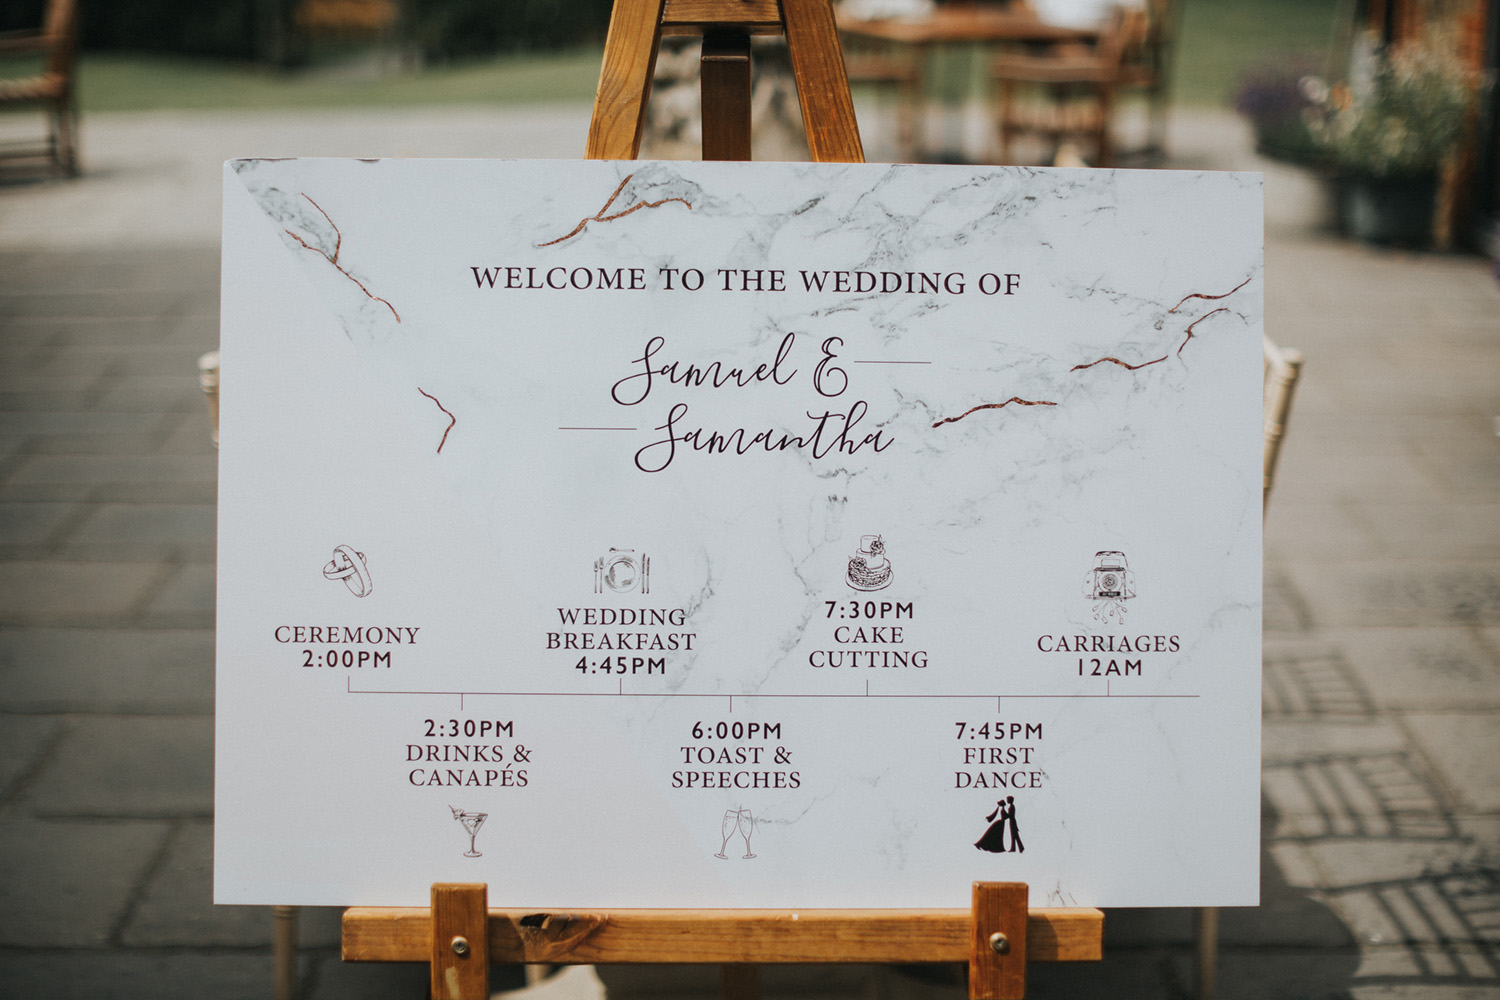 WELCOME TO THE WEDDING OF
Samuel &
Samantha
CEREMONY
2:00PM
2:30PM
DRINKS &
CANAPÉS
WEDDING
BREAKFAST
4:45PM
6:00PM
TOAST &
SPEECHES
7:30PM
CAKE
CUTTING
7:45PM
FIRST
DANCE
CARRIAGES
12AM